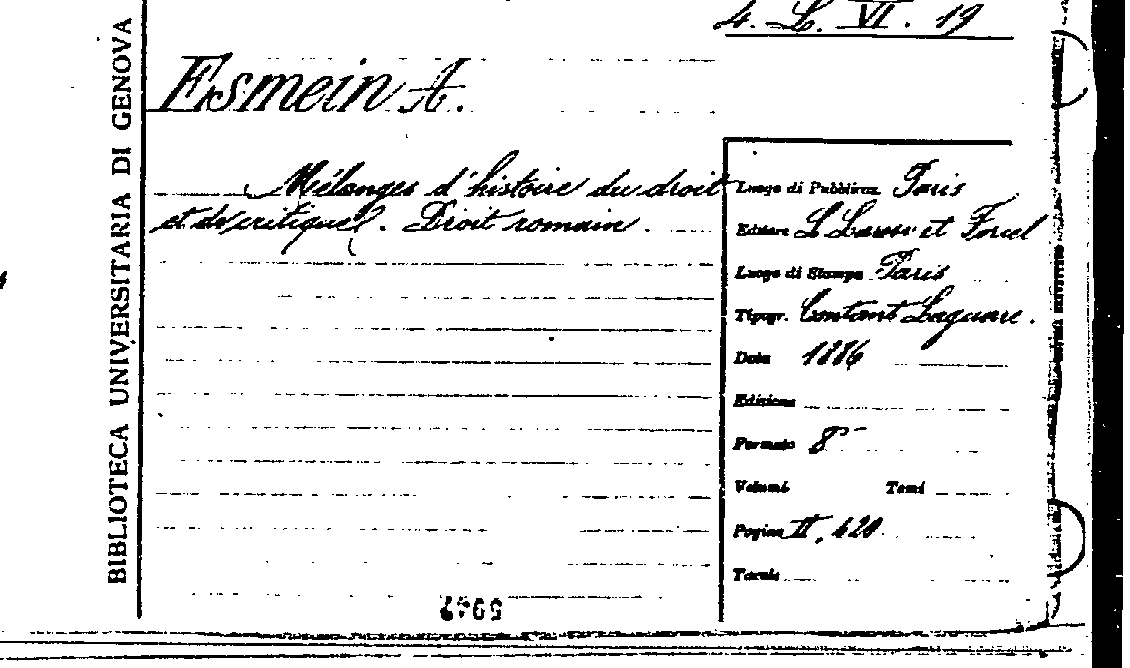 4. L. VI. 19
BIBLIOTECA UNIVERSITARIA DI GENOVA
Esmein A.
Mélanges d'histoire du droit
et de critique. Droit romain.
Luogo di Pubblicaz. Paris
Editore L. Larose et Forcel
Luogo di Stampa Paris
Tipogr. Contant Laguerre.
Data 1886
Edizione
Formato 8°
Volumi Tomi
Pagine II, 420
Tavole